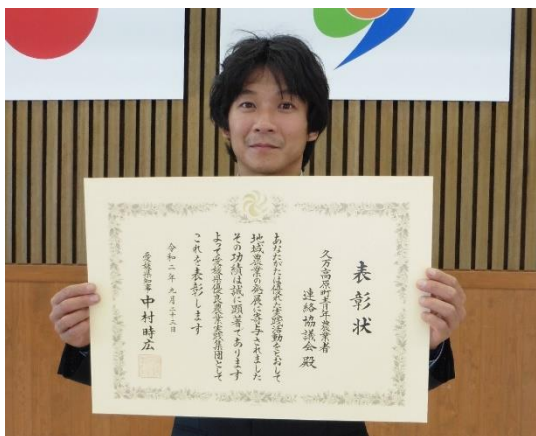 表彰状
久万高原町青年農業者
連絡協議会 殿
あなたがたは優れた実践活動をとおして
地域農業の発展に寄与されました
その功績は誠に顕著であります
よって愛媛県優良農業実践集団として
これを表彰します
令和二年 九月二十二日
愛媛県知事 中村時広